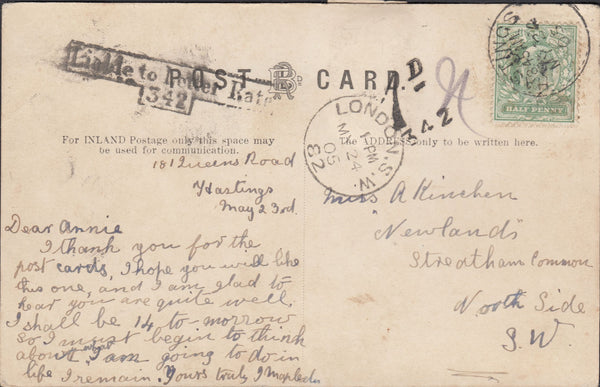 Liable to Letter Rate
342
POST CARD.
1D
342
HALF PENNY
LONDON.S.W.
1 PM
MY 24
05
23
For INLAND Postage only this space may
be used for communication.
The ADDRESS only to be written here.
181 Queens Road
Hastings
May 23rd.
Dear Annie
I thank you for the
post cards, I hope you will like
this one, and I am glad to
hear you are quite well.
I shall be 14 to-morrow
so I must begin to think
about what I am going to do in
life I remain. Yours truly I Mapleden
Miss A Kinchen
"Newlands"
Streatham Common
North Side
S.W.